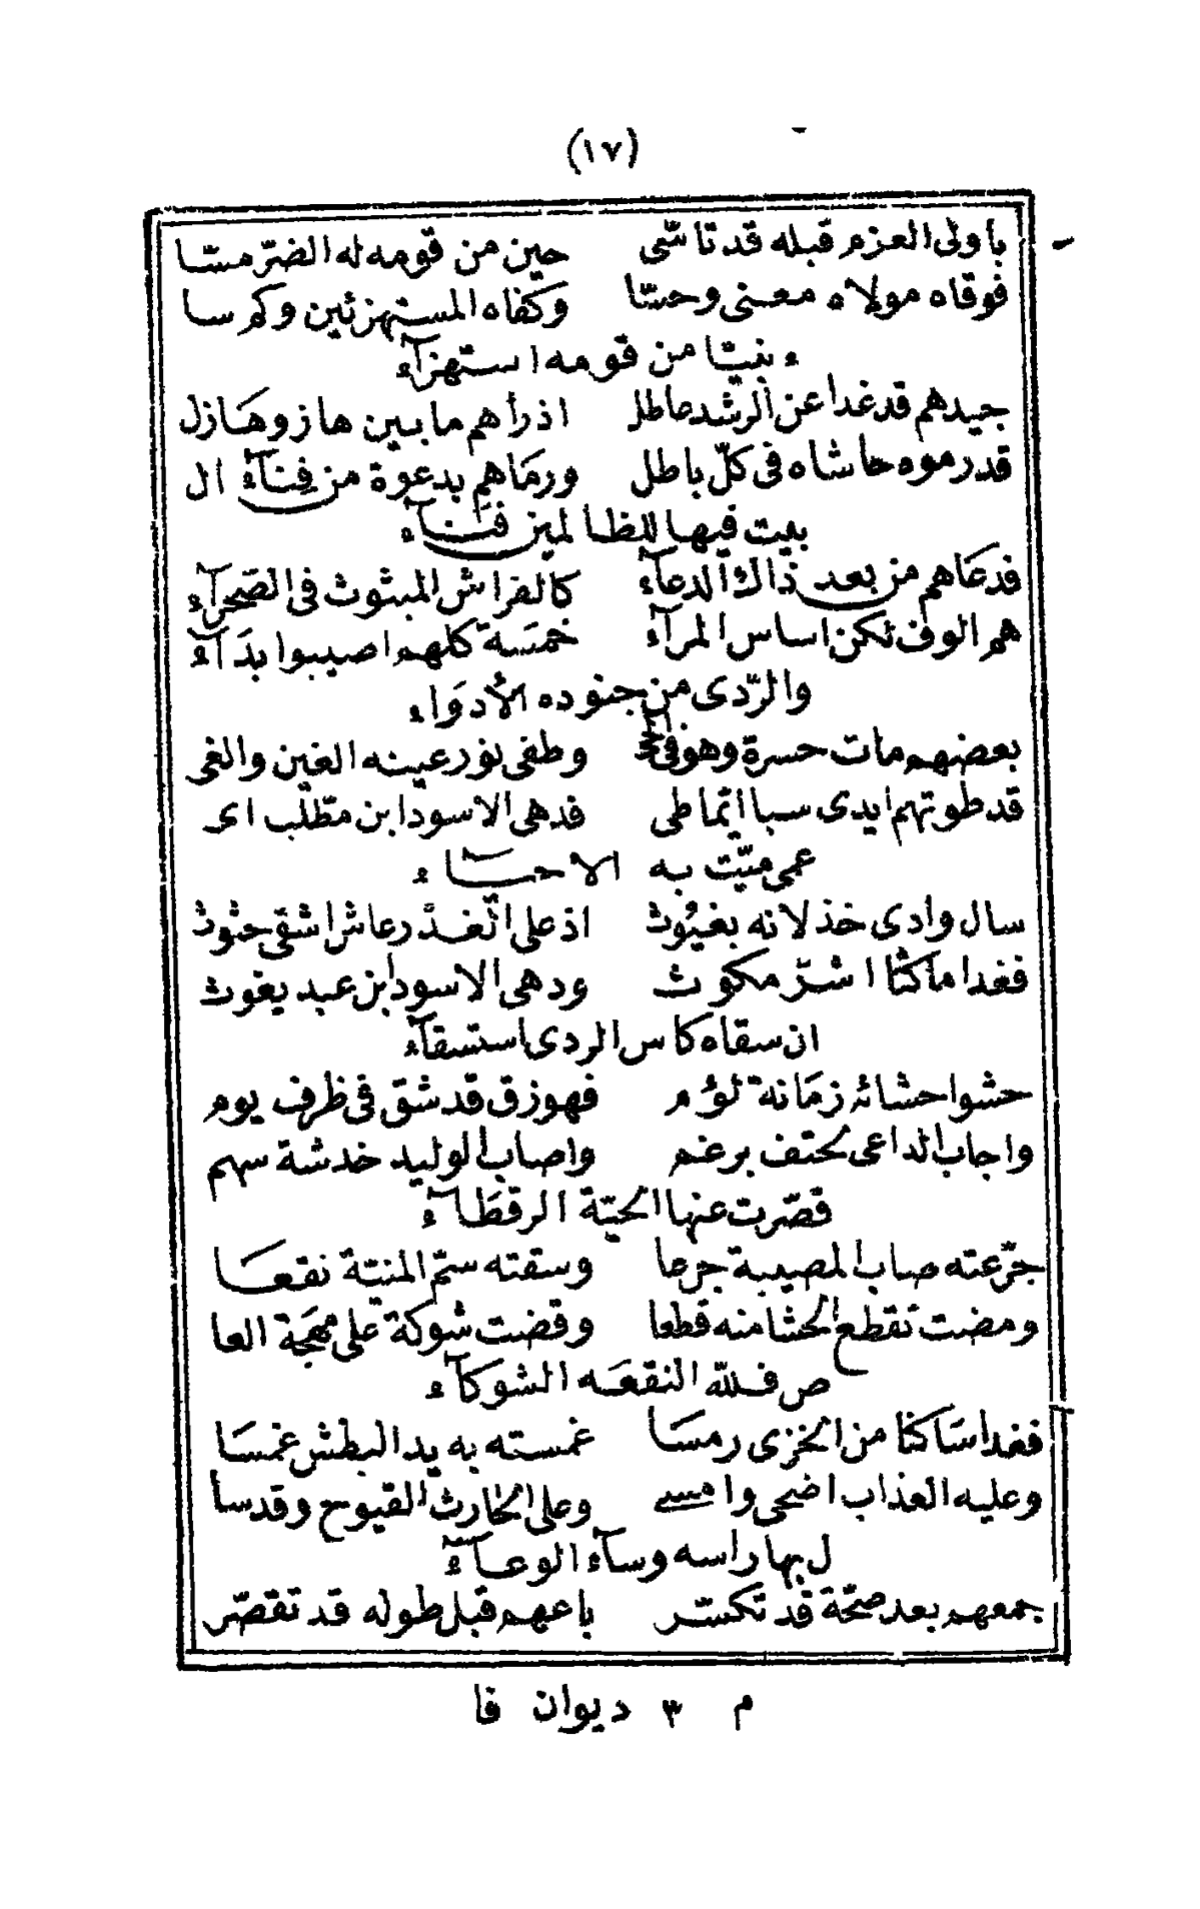 (١٧)
باولى العزم قبله قد تاسّى حين من قومه له الضرّ مسّا
فوقاه مولاه معنى وحسّا وكفاه المستهزئين وكم سا
ء نبيّا من قومه استهزآء
جيدهم قد غدا عن الرشد عاطل اذ رأهم ما بين هاز وهازل
قد رموه حاشاه فى كلّ باطل ورماهم بدعوة من فنآء ال
بيت فيها للظالمين فنآء
فدعاهم من بعد ذاك الدعآء كالفراش المبثوث فى الصحرآء
هم الوف لكن اساس المرآء خمسة كلهم اصيبوا بدآء
والرّدى من جنوده الأدوآء
بعضهم مات حسرة وهو فى وطفى نور عينه الغين والغى
قد طوتهم ايدى سبا ايّما طى فدهى الاسود ابن مطّلب اى
عمى ميّت به الاحيآء
سال وادى خذلانه بغيوث اذ على الغدر عاش اشقى حثوث
فغدا ماكثا اشرّ مكوث ودهى الاسود ابن عبد يغوث
ان سقاه كاس الردى استسقآء
حشوا حشائه زمانة لؤم فهو زق قد شق فى ظرف يوم
واجاب الداعى لحتف برغم واصاب الوليد خدشة سهم
قصّرت عنها الحيّة الرقطآء
جرّعته صاب المصيبة جرعا وسقته سمّ المنيّة نقعا
ومضت تقطع الحشا منه قطعا وقضت شوكة على مهجة العا
ص فلله النقعه الشوكآء
فغدا ساكنا من الخزى رمسا غمسته به يد البطش غمسا
وعليه العذاب اضحى وامسى وعلى الحارث القيوح وقد سا
ل بها راسه وسآء الوعآء
جمعهم بعد صحّة قد تكسّر باعهم قبل طوله قد تقصّر
م ٣ ديوان فا